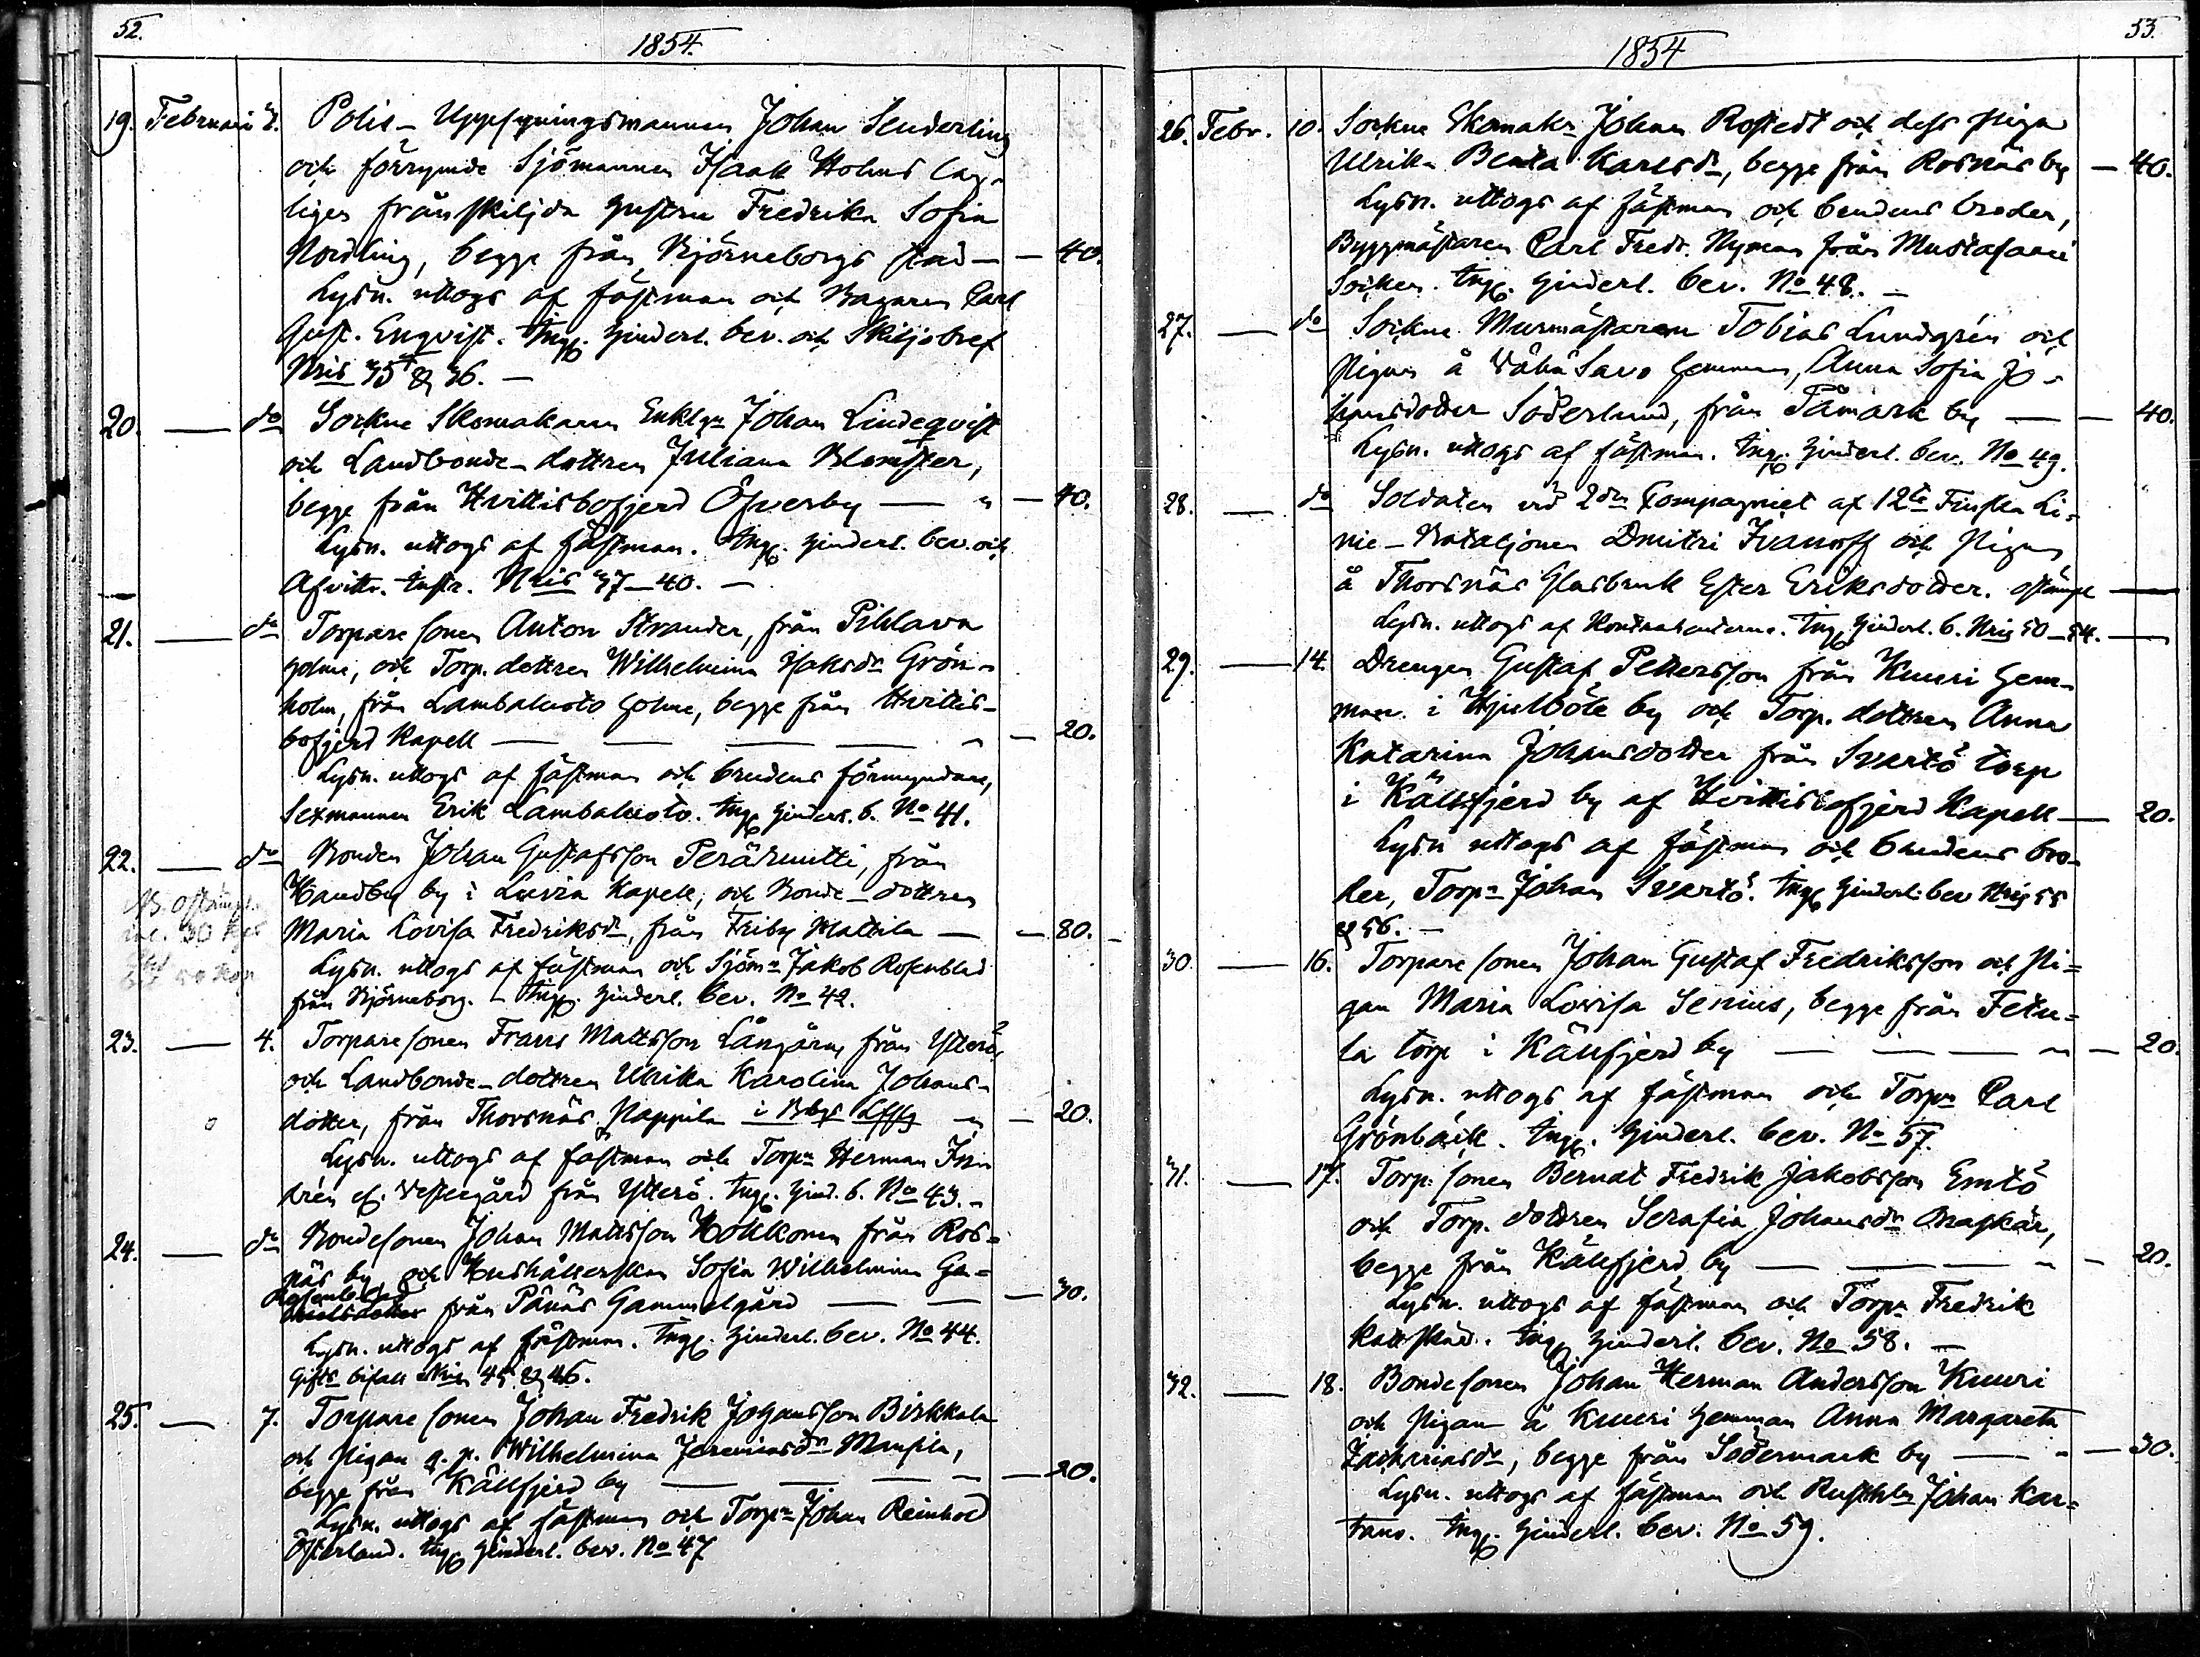 52.
1854.
19. Februarii 2. Polis-Uppsyningsmannen Johan Senderling
och förrymde Sjömannen Isaak Holms lag-
ligen frånskiljda hustru Fredrika Sofia
Nordling, begge från Björneborgs stad — — 40.
Lysn. uttogs af fästman och Bagaren Carl
Gust. Enqvist. Ingl. hinderl. bev. och Skiljobref
Nris 35 & 36. —
20. — do Sockne Skomakaren Enklgn Johan Lindeqvist
och Landbonde-dottren Juliana Blomster,
begge från Hvittisbofjerd Öfverby — " — 40.
Lysn. uttogs af fästman. Ingl. hinderl. bev. och
Afvittr. Instr. Nris 37—40. —
21. — do Torparesonen Anton Strander, från Pihlava
holme, och Torp. dottren Wilhelmina Isaksdr Grön-
holm, från Lambaluoto holme, begge från Hvittis-
bofjerd Kapell — — — — " — 20.
Lysn. uttogs af fästman och brudens förmyndare,
Sexmannen Erik Lambaluoto. Ingl. hinderl. b. No 41.
22. — do Bonden Johan Gustafsson Peräkuitti, från
Hanby by i Luvia Kapell, och Bonde-dottren
Maria Lovisa Fredriksdr, från Friby Mattila — — 80. —
Lysn. uttogs af fästman och Sjömn Jakob Rosenblad
från Björneborg. — Ingl. hinderl. bev. No 42.
23. — 4. Torparesonen Frans Mattsson Långårn från Ytterö
och Landbonde-dottren Ulrika Karolina Johans-
dotter, från Thorsnäs Pappila i " — 20.
Lysn. uttogs af fästman och Torpn Herman
från Ytterö. Ingl. hind. b. No 43. —
24. — do Bondesonen Johan Mattsson Hohkonen från Ros-
näs by, och Hushållerskan Sofia Wilhelmina Ga-
Rosenblad
från Pånäs Gammelgård — — — 30.
Lysn. uttogs af fästman. Ingl. hinderl. bev. No 44.
Gifto bifall Nris 45 & 46.
25. — 7. Torparesonen Johan Fredrik Johansson Birkkala
och Pigan Wilhelmina Jeremiasdr
begge från Källfjerd by — — — " — 20.
Lysn. uttogs af fästman och Torpn Johan Reinhold
Österland. Ingl. hinderl. bev. No 47
53.
1854
26. Febr. 10. Sockne Skomakn Johan Rostedt och dess Piga
Ulrika Beata Karlsdr, begge från Rosnäs by — 40.
Lysn. uttogs af fästman och brudens broder,
Byggmästaren Carl Fredr. Nyman från Mustasaari
Socken. Ingl. hinderl. bev. No 48. —
27. — do Sockne Murmästaren Tobias Lundgrén och
Pigan å Vähä Savo hemman, Anna Sofia Jo-
hansdotter Söderlund, från Tåmark by — — 40.
Lysn. uttogs af fästman. Ingl. hinderl. bev. No 49.
28. — do Soldaten vid 2dra Compagniet af 12te Finska Li-
nie-Bataljonen Dmitri Ivanoff och Pigan
å Thorsnäs Glasbruk Ester Eriksdotter. ostämpl —
Lysn. uttogs af Kontrahenterne. Ingl. hinderl. b. Nris 50—54. —
29. — 14. Drengen Gustaf Pettersson från Kuuri hem-
man i Hjulböle by och Torp. dottren Anna
Katarina Johansdotter från Svartö torp
i Källfjerd by af Hvittisbofjerd Kapell — 20.
Lysn uttogs af fästman och brudens bro-
der, Torpn Johan Svartö. Ingl. hinderl. bev Nris 55
& 56. —
30. — 16. Torparesonen Johan Gustaf Fredriksson och Pi-
gan Maria Lovisa Senius, begge från Fetu-
la torp i Källfjerd by — — — " — 20.
Lysn. uttogs af fästman och Torpn Carl
Grönbäck. Ingl. hinderl. bev. No 57.
31. — 17. Torp. sonen Berndt Fredrik Jakobsson Emtö
och Torp. dottren Serafia Johansdr
begge från Källfjerd by — — — " — 20.
Lysn. uttogs af fästman och Torpn Fredrik
Kattskär. Ingl. hinderl. bev. No 58. —
32. — 18. Bondesonen Johan Herman Andersson Kuuri
och Pigan å Kuuri hemman Anna Margareta
Zachariasdr, begge från Södermark by — " — 30.
Lysn. uttogs af fästman och Rusthln Johan Kar-
tano. Ingl. hinderl. bev. No 59.